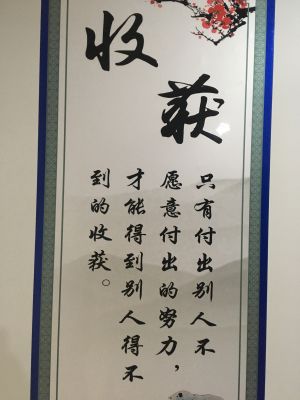 收获
只有付出别人不
愿意付出的努力，
才能得到别人得不
到的收获。